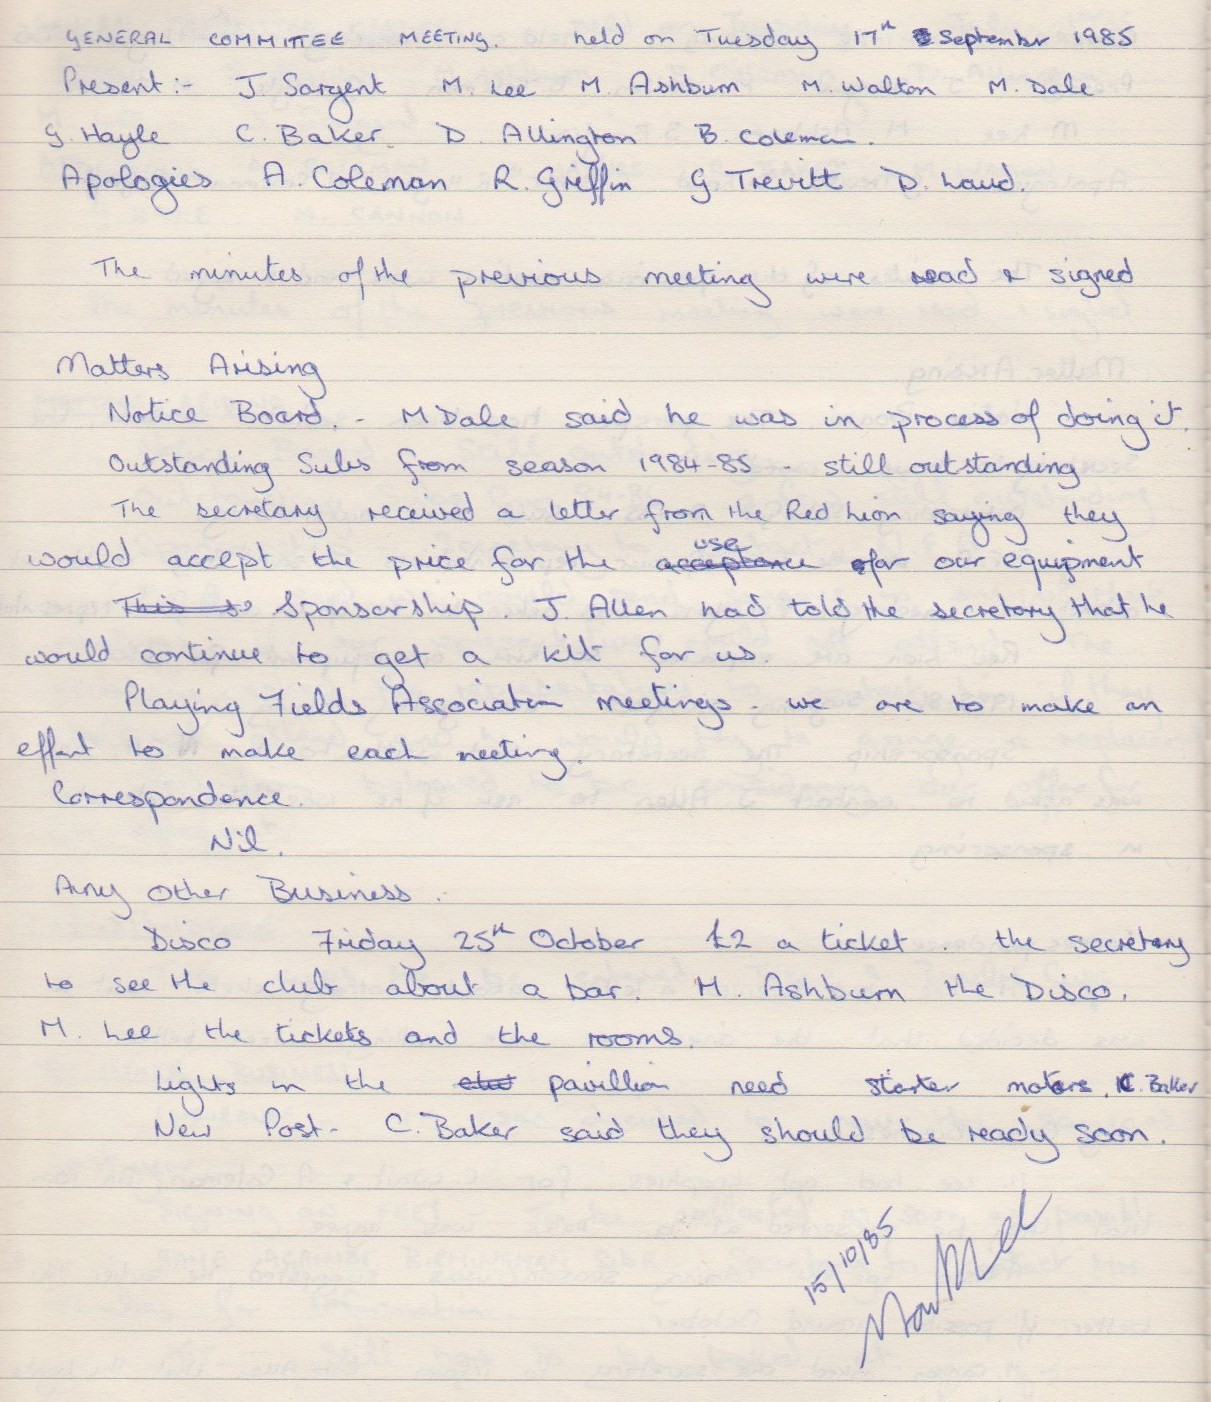 GENERAL COMMITTEE MEETING. held on Tuesday 17th September 1985
Present :- J. Sargent M. Lee M. Ashburn M. Walton M. Dale
G. Hayle C. Baker. D. Allington B. Coleman.
Apologies A. Coleman R. Griffin G Trevitt D. Laud.
The minutes of the previous meeting were read & signed
Matters Arising
Notice Board. - M Dale said he was in process of doing it.
Outstanding Subs from season 1984-85 - still outstanding
The secretary received a letter from the Red Lion saying they
use
would accept the price for the acceptance for our equipment
This s Sponsorship. J. Allen had told the secretary that he
would continue to get a kit for us.
Playing Fields Association meetings. we are to make an
effort to make each meeting.
Correspondence.
Nil.
Any Other Business.
Disco Friday 25th October £2 a ticket. the secretary
to see the club about a bar. M. Ashburn the Disco.
M. Lee the tickets and the rooms.
Lights in the pavillion need starter motors. C. Baker
New Post - C. Baker said they should be ready soon.
15/10/85